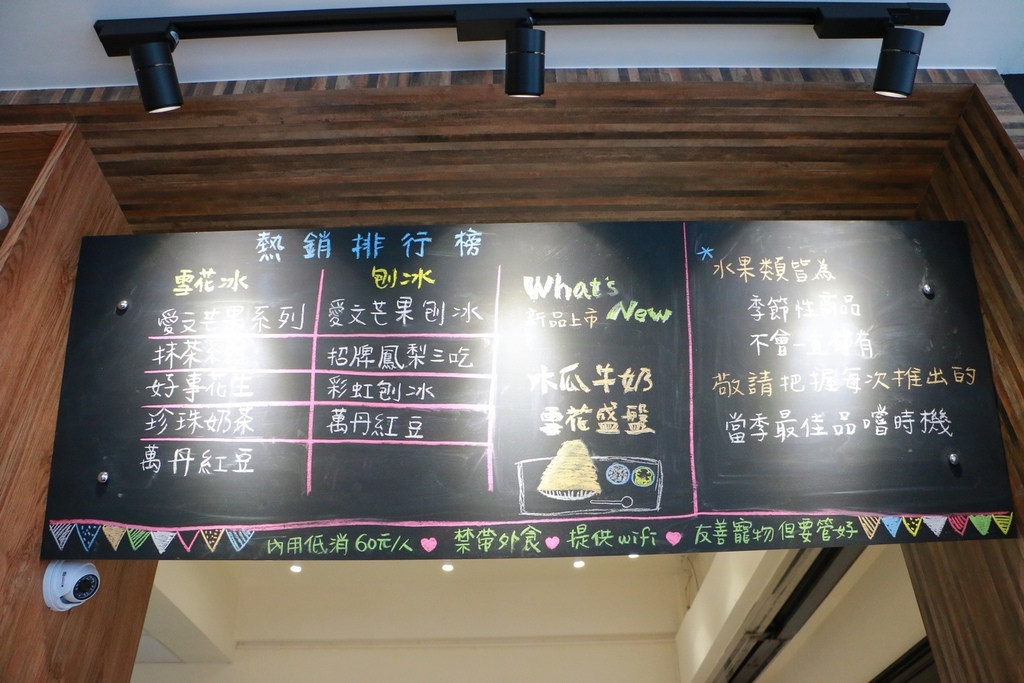 熱銷排行榜
雪花冰
愛文芒果系列
抹茶系列
好事花生
珍珠奶茶
萬丹紅豆
刨冰
愛文芒果刨冰
招牌鳳梨三吃
彩虹刨冰
萬丹紅豆
What's New
新品上市
木瓜牛奶
雪花盛盤
*水果類皆為
季節性商品
不會一 都有
敬請把握每次推出的
當季最佳品嚐時機
內用低消60元/人 ♥ 禁帶外食 ♥ 提供wifi ♥ 友善寵物但要管好